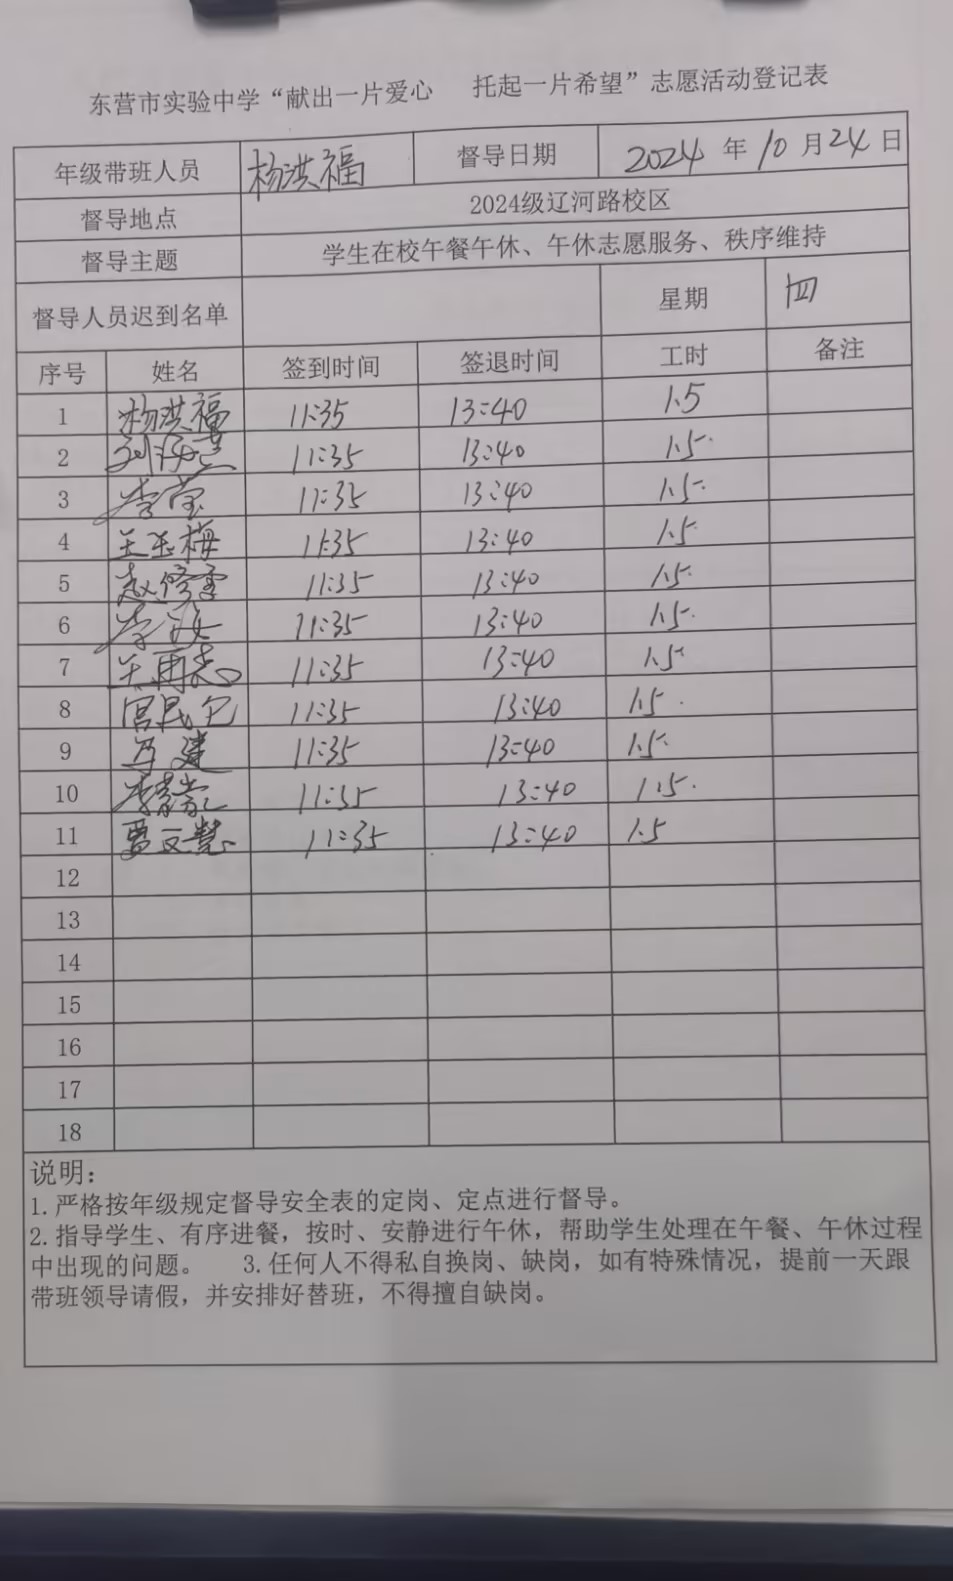 东营市实验中学“献出一片爱心 托起一片希望”志愿活动登记表
年级带班人员 杨洪福 督导日期 2024 年 10 月 24 日
督导地点 2024级辽河路校区
督导主题 学生在校午餐午休、午休志愿服务、秩序维持
督导人员迟到名单 星期 四
序号 姓名 签到时间 签退时间 工时 备注
1 杨洪福 11:35 13:40 1.5
2 11:35 13:40 1.5
3 李莹 11:35 13:40 1.5
4 王玉梅 11:35 13:40 1.5
5 11:35 13:40 1.5
6 11:35 13:40 1.5
7 11:35 13:40 1.5
8 11:35 13:40 1.5
9 11:35 13:40 1.5
10 11:35 13:40 1.5
11 11:35 13:40 1.5
12
13
14
15
16
17
18
说明：
1.严格按年级规定督导安全表的定岗、定点进行督导。
2.指导学生、有序进餐，按时、安静进行午休，帮助学生处理在午餐、午休过程
中出现的问题。 3.任何人不得私自换岗、缺岗，如有特殊情况，提前一天跟
带班领导请假，并安排好替班，不得擅自缺岗。